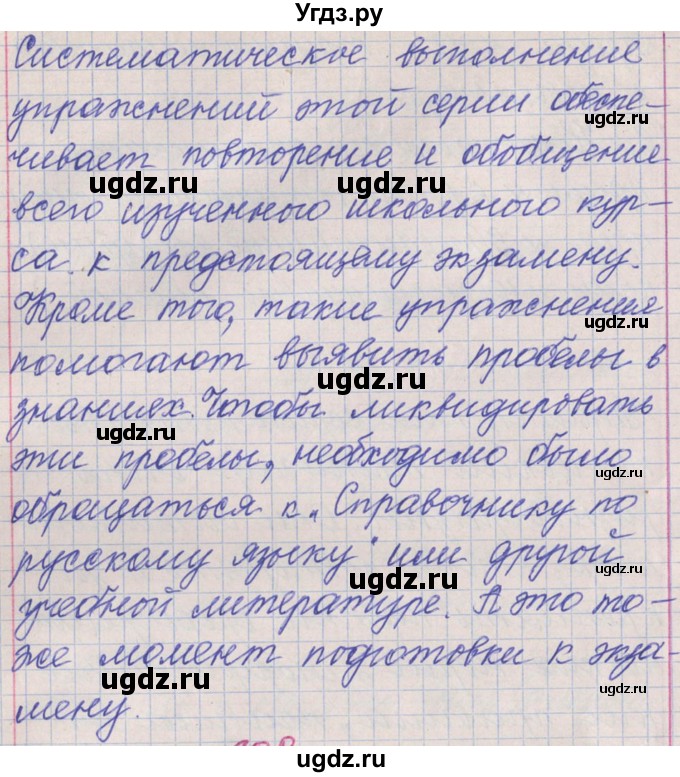 Угдз.ру
Систематическое выполнение
упражнений этой серии обеспе-
ugdz.ru
чивает повторение и обобщение
ugdz.ru ugdz.ru
всего изученного школьного кур-
са к предстоящему экзамену.
ugdz.ru
Кроме того, такие упражнения
ugdz.ru
помогают выявить пробелы в
ugdz.ru
знаниях. Чтобы ликвидировать
ugdz.ru
эти пробелы, необходимо было
ugdz.ru
обращаться к "Справочнику по
русскому языку" или другой
ugdz.ru ugdz.ru
учебной литературе. А это то-
же момент подготовки к экза-
ugdz.ru ugdz.ru
мену.
ugdz.ru